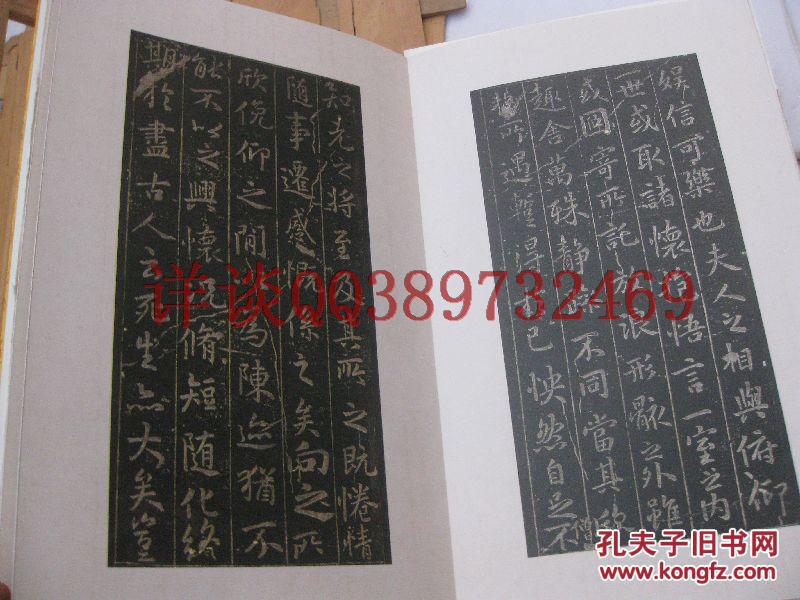 娱信可樂也夫人之相與俯仰
一世或取諸懷抱悟言一室之内
或因寄所託放浪形骸之外雖
趣舍萬殊静躁不同當其欣
僧
於所遇蹔得於己怏然自足不
知老之將至及其所之既惓情
隨事遷感慨係之矣向之所
欣俛仰之間以為陳迹猶不
能不以之興懷況脩短随化終
期於盡古人云死生亦大矣豈
详谈QQ389732469
孔夫子旧书网
www.kongfz.com